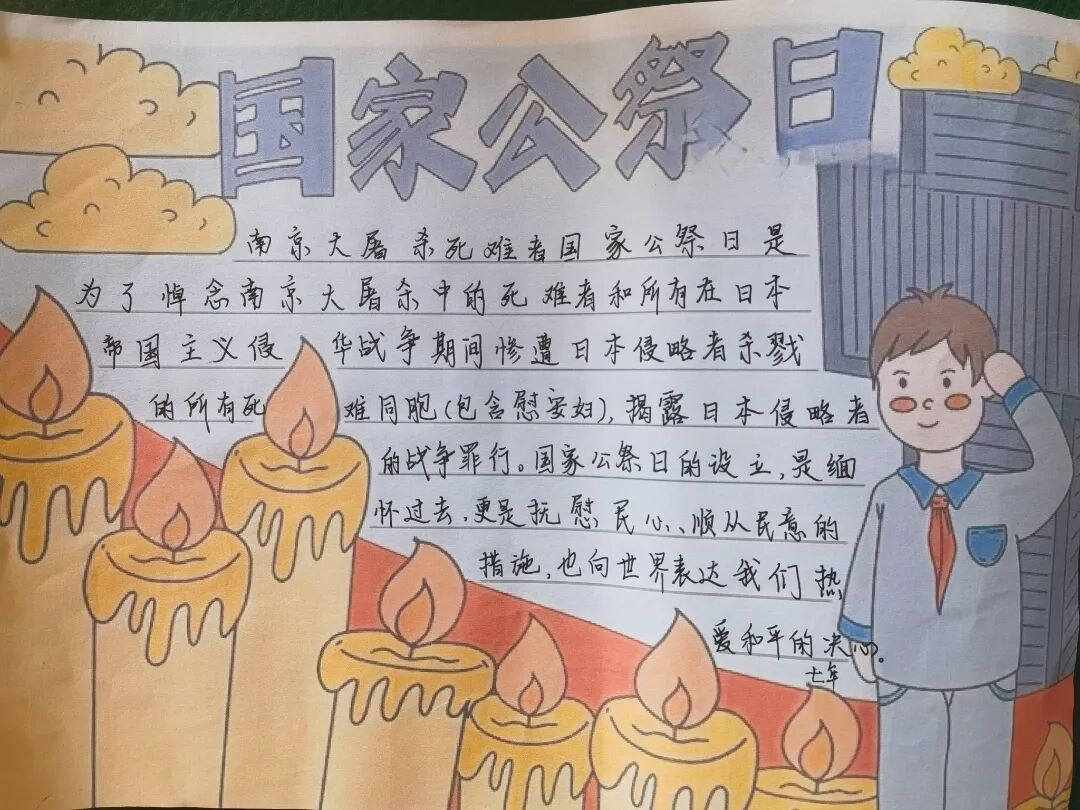 国家公祭日
南京大屠杀死难者国家公祭日是
为了悼念南京大屠杀中的死难者和所有在日本
帝国主义侵华战争期间惨遭日本侵略者杀戮
的所有死难同胞(包含慰安妇),揭露日本侵略者
的战争罪行。国家公祭日的设立,是缅
怀过去,更是抚慰民心、顺从民意的
措施,也向世界表达我们热
爱和平的决心。
七年